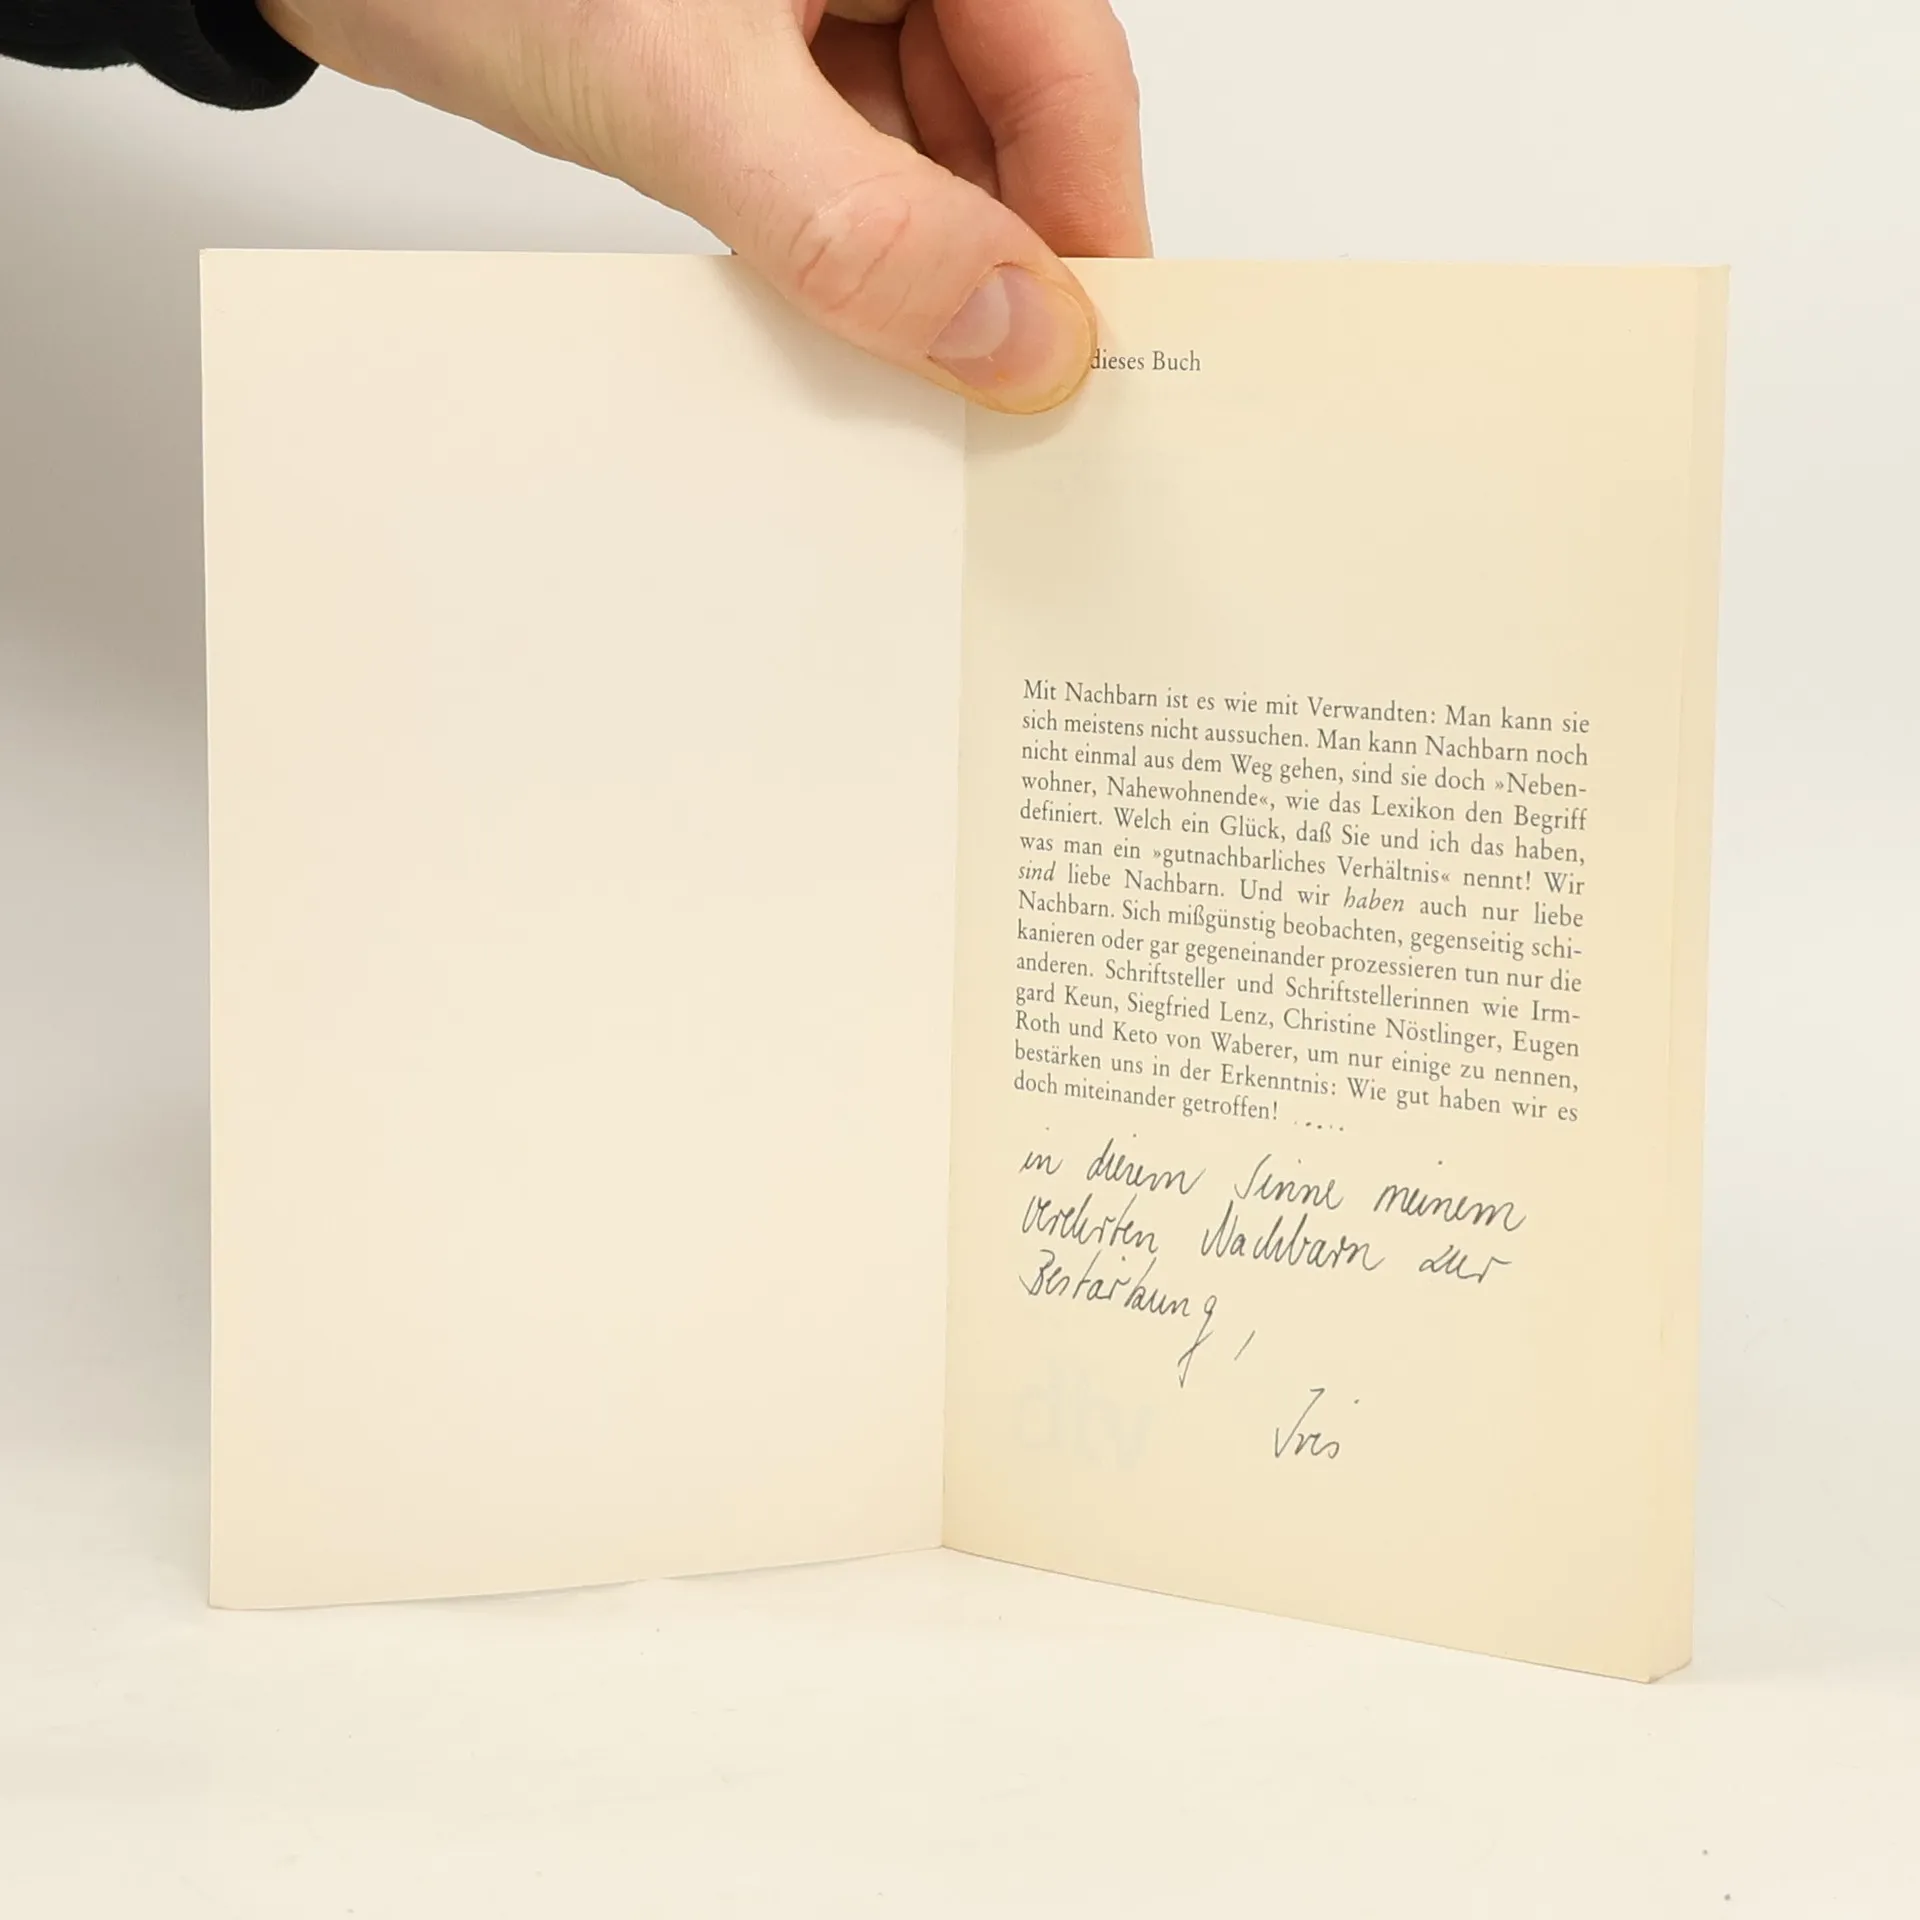 dieses Buch
Mit Nachbarn ist es wie mit Verwandten: Man kann sie
sich meistens nicht aussuchen. Man kann Nachbarn noch
nicht einmal aus dem Weg gehen, sind sie doch »Neben-
wohner, Nahewohnende«, wie das Lexikon den Begriff
definiert. Welch ein Glück, daß Sie und ich das haben,
was man ein »gutnachbarliches Verhältnis« nennt! Wir
sind liebe Nachbarn. Und wir haben auch nur liebe
Nachbarn. Sich mißgünstig beobachten, gegenseitig schi-
kanieren oder gar gegeneinander prozessieren tun nur die
anderen. Schriftsteller und Schriftstellerinnen wie Irm-
gard Keun, Siegfried Lenz, Christine Nöstlinger, Eugen
Roth und Keto von Waberer, um nur einige zu nennen,
bestärken uns in der Erkenntnis: Wie gut haben wir es
doch miteinander getroffen! .....
in diesem Sinne meinem
verehrten Nachbarn zur
Bestärkung,
Iris
dtv